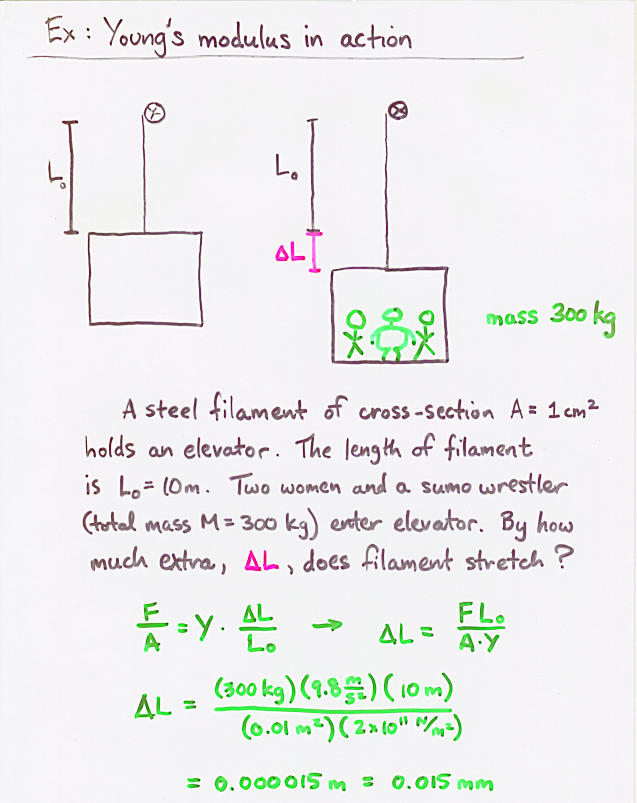 Ex: Young's modulus in action
L₀
L₀
ΔL
mass 300 kg
A steel filament of cross-section A = 1 cm²
holds an elevator. The length of filament
is L₀ = 10m. Two women and a sumo wrestler
(total mass M = 300 kg) enter elevator. By how
much extra, ΔL, does filament stretch?
F/A = Y · ΔL/L₀ → ΔL = F L₀/A·Y
ΔL = (300 kg)(9.8 m/s²)(10 m)/(0.01 m²)(2×10¹¹ N/m²)
= 0.000015 m = 0.015 mm